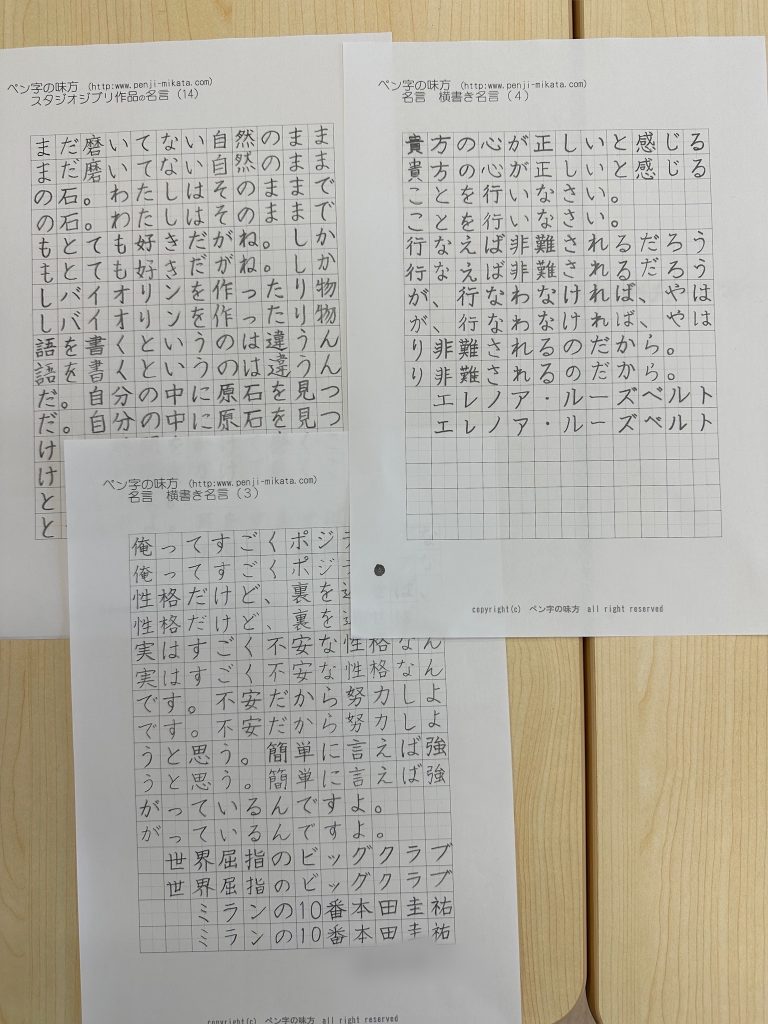 ペン字の味方 (http:www.penji-mikata.com)
スタジオジブリ作品の名言(14)
まだ磨いてない自然のまま
まだ磨いてない自然のまま
の石。わたしはそのままで
の石。わたしはそのままで
もとても好きだがね。しか
もとても好きだがね。しか
しバイオリンを作ったり物
しバイオリンを作ったり物
語を書くというのは違うん
語を書くというのは違うん
だ。自分の中に原石を見つ
だ。自分の中に原石を見つ
け
け
と
と
ペン字の味方 (http:www.penji-mikata.com)
名言 横書き名言(4)
貴方の心が正しいと感じる
貴方の心が正しいと感じる
ことを行いなさい。
ことを行いなさい。
行なえば非難されるだろう
行なえば非難されるだろう
が、行なわなければ、やは
が、行なわなければ、やは
り非難されるのだから。
り非難されるのだから。
エレノア・ルーズベルト
エレノア・ルーズベルト
copyright(c) ペン字の味方 all right reserved
ペン字の味方 (http:www.penji-mikata.com)
名言 横書き名言(3)
俺ってすごくポジ
俺ってすごくポジ
性格だけど、裏を
性格だけど、裏を
実はすごく不安な性格なん
実はすごく不安な性格なん
です。不安だから努力しよ
です。不安だから努力しよ
うと思う。簡単に言えば強
うと思う。簡単に言えば強
がっているんですよ。
がっているんですよ。
世界屈指のビッグクラブ
世界屈指のビッグクラブ
ミランの10番本田圭祐
ミランの10番本田圭祐
copyright(c) ペン字の味方 all right reserved